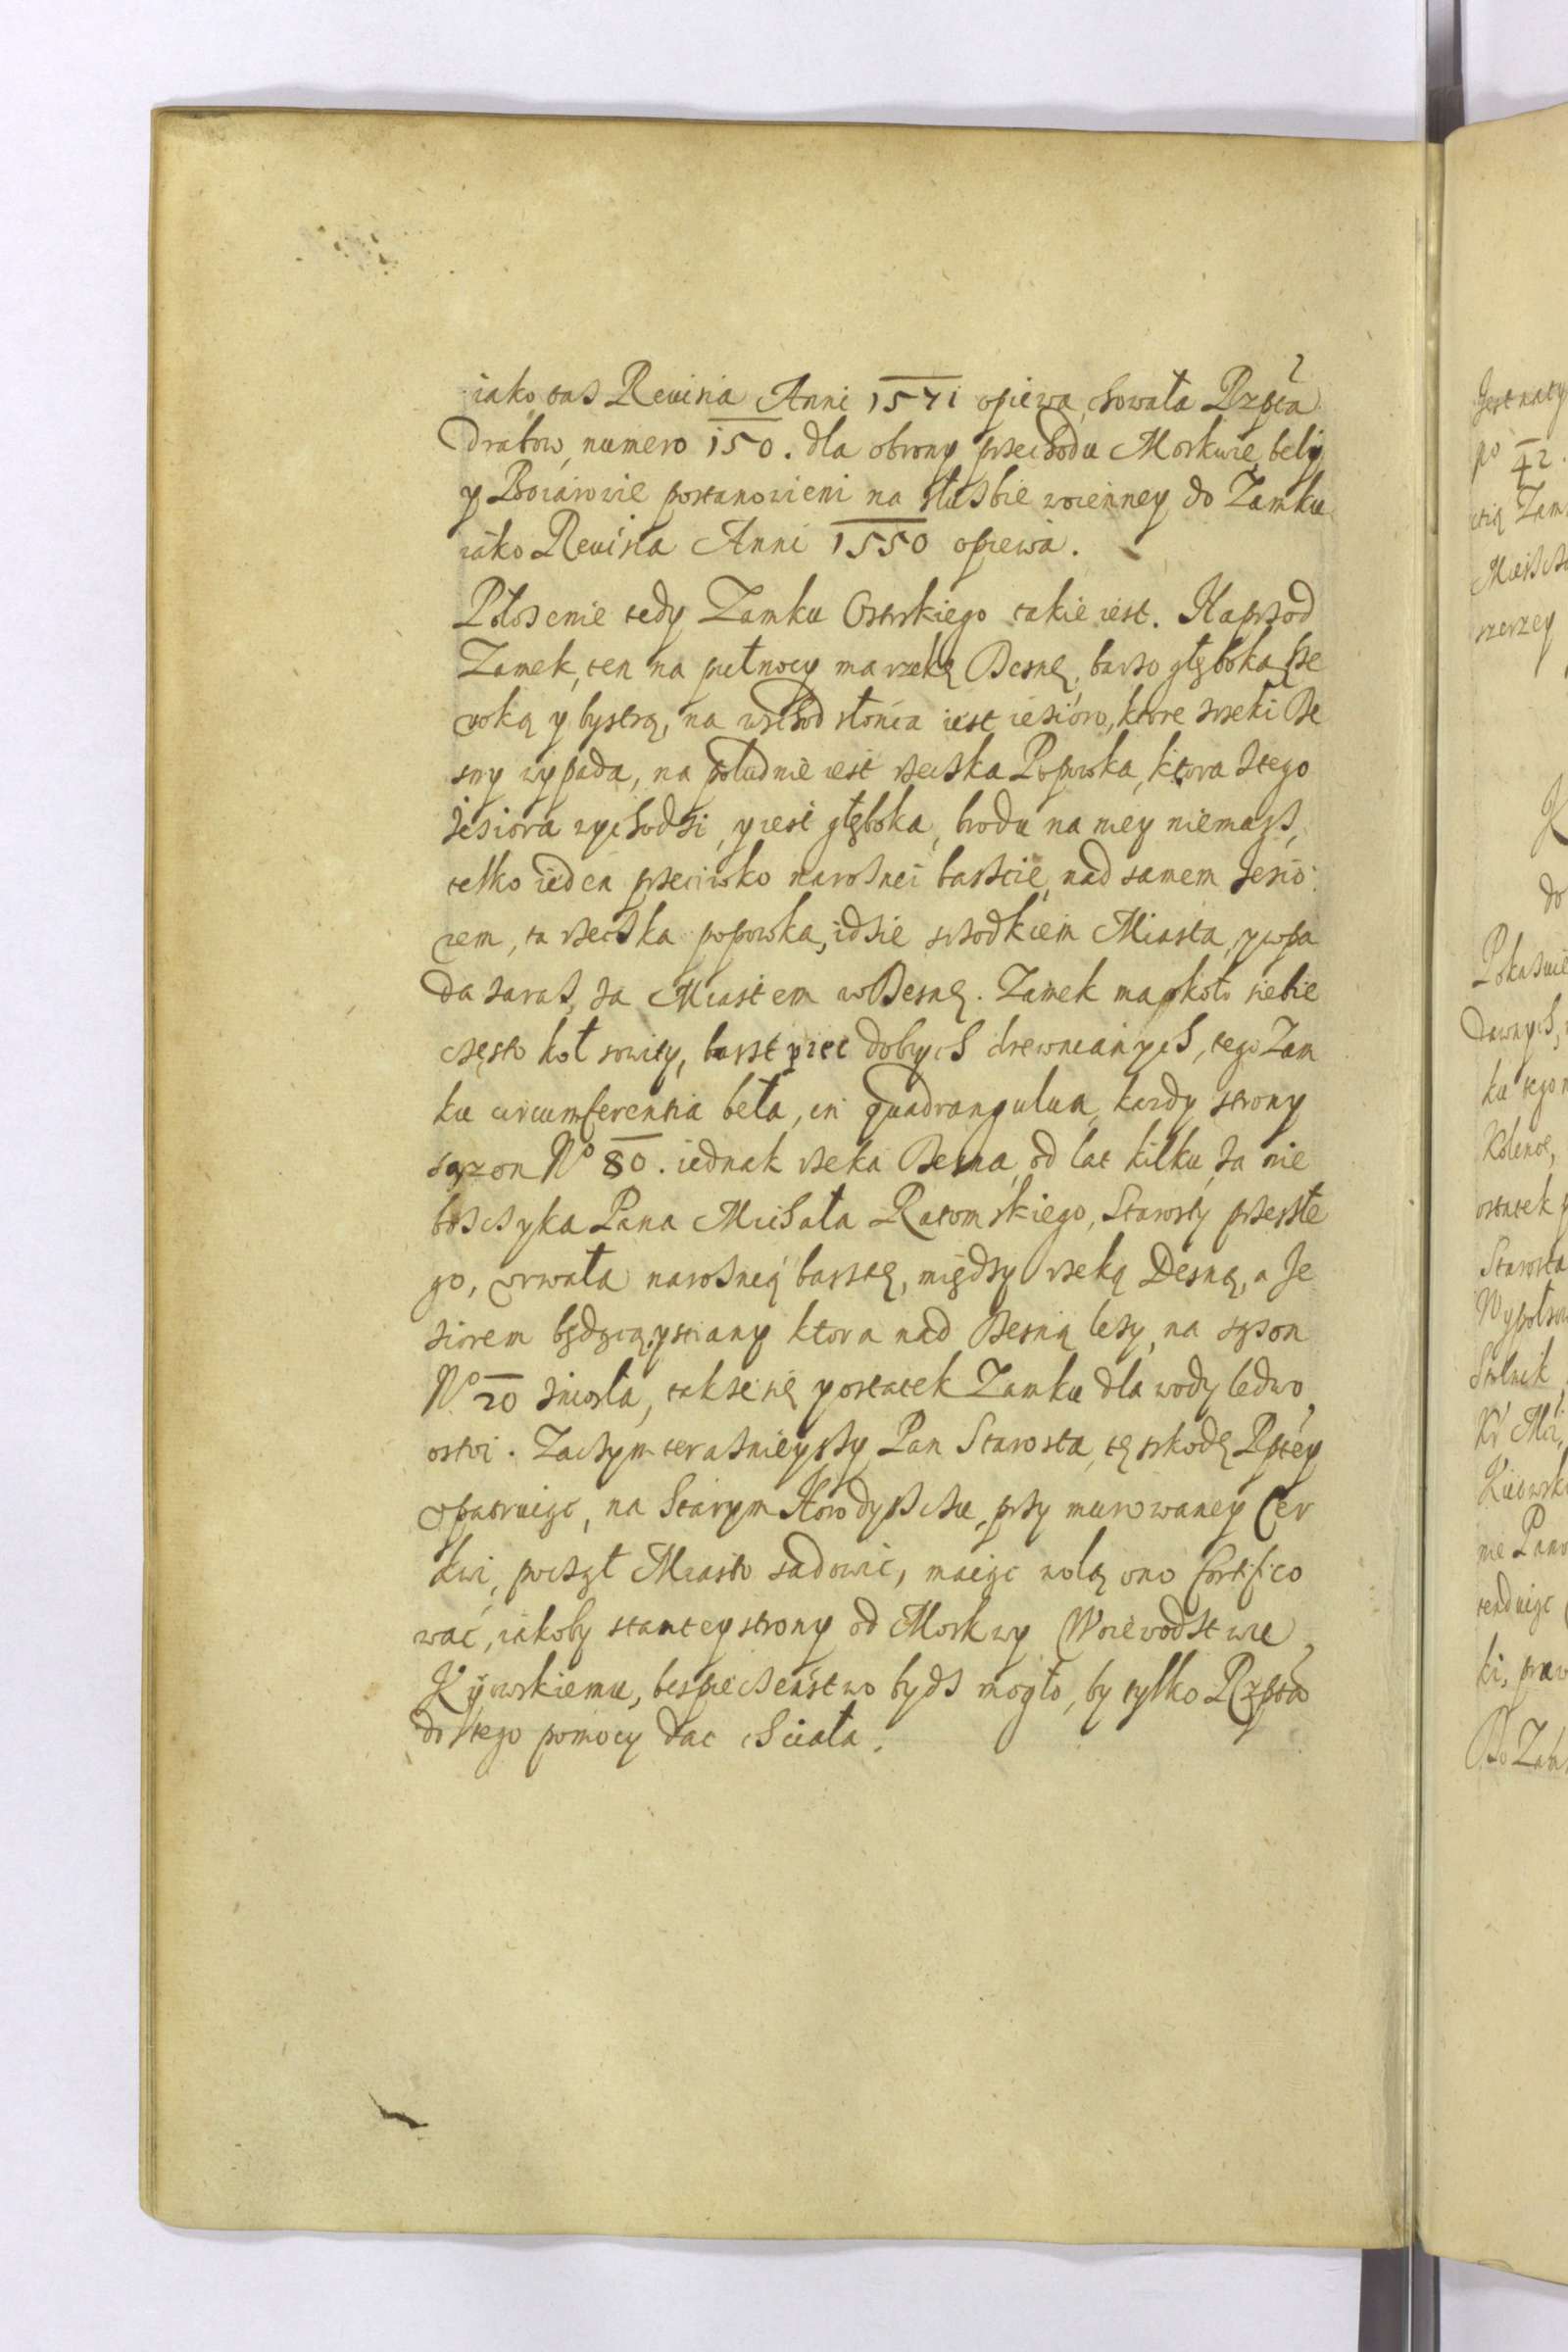 iako tas Reuisia Anni 1571 opiewa, howała Rzpta
Drabow, numero 150. dla obrony przechodu Moskwie, beli
y Boiarowie postanowieni na służbie woienney do Zamku
iako Reuisia Anni 1550 opiewa.
Położenie tedy Zamku Osterskiego takie iest. Naprzod
Zamek, ten na pułnocy ma rzekę Desnę, barzo głęboką sze
roką y bystrą, na wschod słońca iest iezioro, ktore z rzeki De
sny wypada, na południe iest rzeczka Popowka, ktora z tego
Jeziora wychodzi, y iest głęboka, brodu na niey niemasz,
telko ieden przeciwko narożnei baszcie, nad samem Jezio
rem, ta rzeczka popowka, idzie srzodkiem Miasta, y wpa
da zaraz, za Miastem w Desnę. Zamek ma około siebie
często koł sowity, baszt pięć dobrych drewnianych, tego Zam
ku circumferentia beła, in quadrangulum, kazdy strony
sązon No 80. iednak rzeka Desna, od lat kilku, za nie
bosczyka Pana Michała Ratomskiego, Starosty przeszłe
go, vrwała narożnią basztę, między rzeką Desną, a Je
ziorem będącą, y sciany ktora nad Desną leży, na sązon
No 20 zniosła, takze się y ostatek Zamku dla wody ledwo
ostoi. Zaczym teraznieyszy Pan Starosta, tę szkodę Rptey
vpatruiąc, na Starym Horodyszczu, przy murowaney Cer
kwi, począł Miasto sadowic, maiąc wolą ono fortifico
wać, iakoby z tamtey strony od Moskwy Woiewodztwu
Kijowskiemu, bespieczeństwo bydz mogło, by tylko Rzpta
do tego pomocy dac chciała.